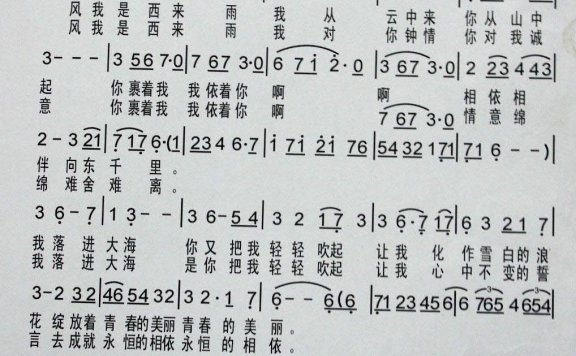 风我是西来 雨 我 从 云中来 你从山中
风我是西来 雨 我 对 你钟情 你对我诚
3 - - - | 3 567 7·0 | 7 67 3·0 | 6 7i 2·0 | 3 67 3·0 | 2 23 4 43
起 你裹着我 我依着你 啊 啊 相依相
意 你裹着我 我依着你 啊 7 67 3·0 情意绵
2 - 3 21 | 7 17 6·(1 | 234 6·7 | i 7i 2i 76 | 5432 171 | 71 6 - - )
伴 向东 千 里。
绵 难舍 难 离。
3 6 - 7 | 1 3 - - | 3 6 - 54 | 3 2 17 3 | 3 6·7 17 | 6 3 21 7
我落 进 大海 你又 把我 轻轻 吹起 让我 化 作雪 白的 浪
我落 进 大海 是你 把我 轻轻 吹起 让我 心 中不 变的 誓
3 - 2 32 | 46 54 32 | 3 2·1 7 | 6 - - 6(6 | 71 23 45 6 | 6 765 4 654
花 绽放着 青春的美丽 青春 的 美 丽。
言 去成就 永恒的相依 永恒 的 相 依。